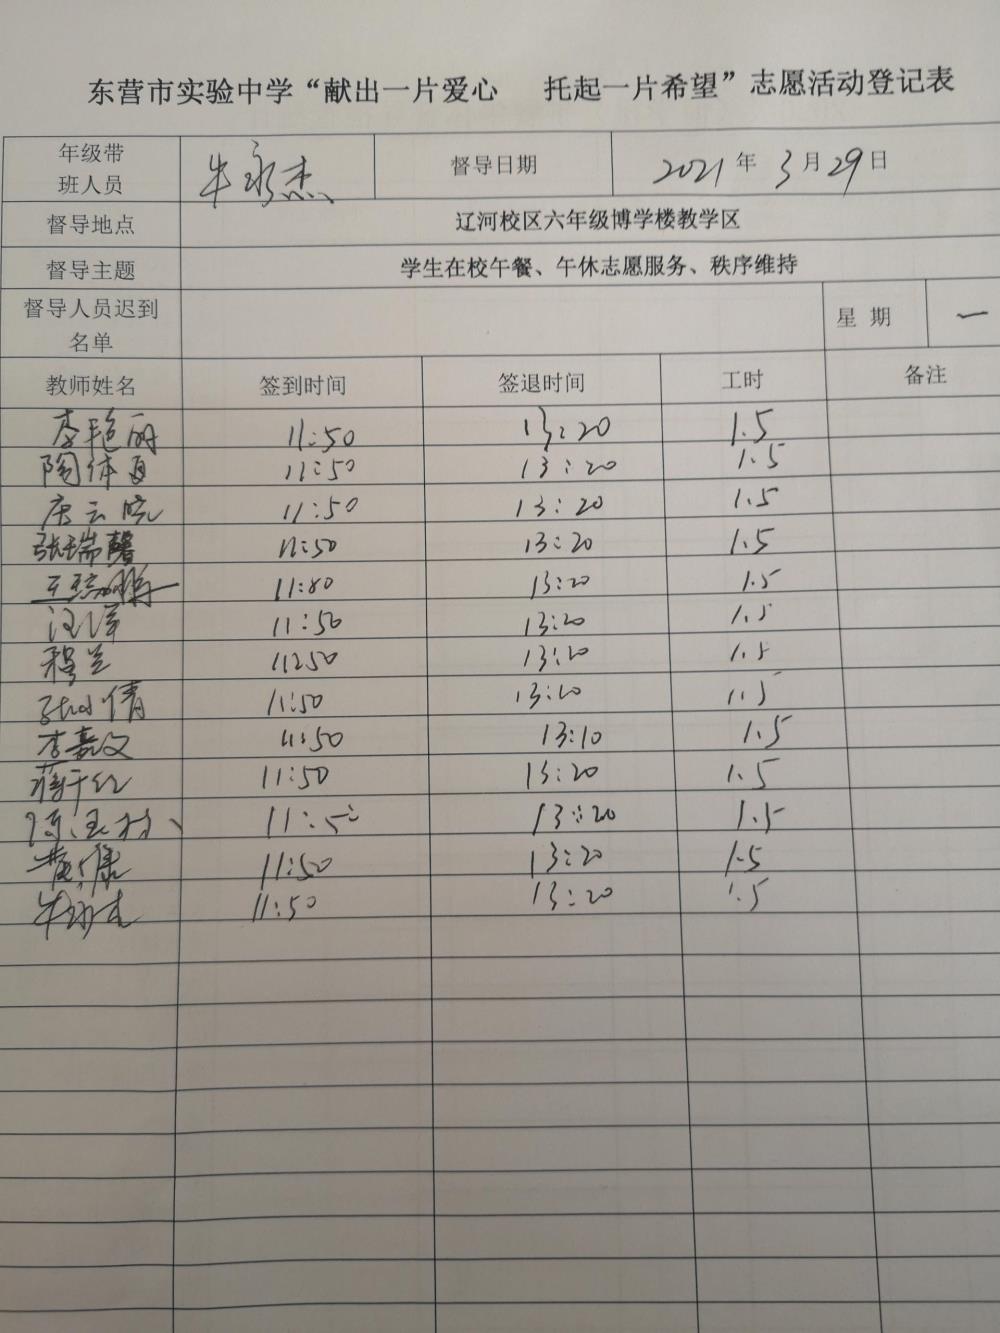 东营市实验中学“献出一片爱心 托起一片希望”志愿活动登记表
年级带班人员 牛永杰 督导日期 2021年3月29日
督导地点 辽河校区六年级博学楼教学区
督导主题 学生在校午餐、午休志愿服务、秩序维持
督导人员迟到名单 星期 一
教师姓名 签到时间 签退时间 工时 备注
李艳丽 11:50 13:20 1.5
陶体 11:50 13:20 1.5
唐云 11:50 13:20 1.5
张瑞馨 11:50 13:20 1.5
王 11:50 13:20 1.5
汪洋 11:50 13:20 1.5
穆兰 11:50 13:20 1.5
倩 11:50 13:20 1.5
李嘉文 11:50 13:10 1.5
蒋于红 11:50 13:20 1.5
陈玉 11:50 13:20 1.5
黄康 11:50 13:20 1.5
牛永杰 11:50 13:20 1.5